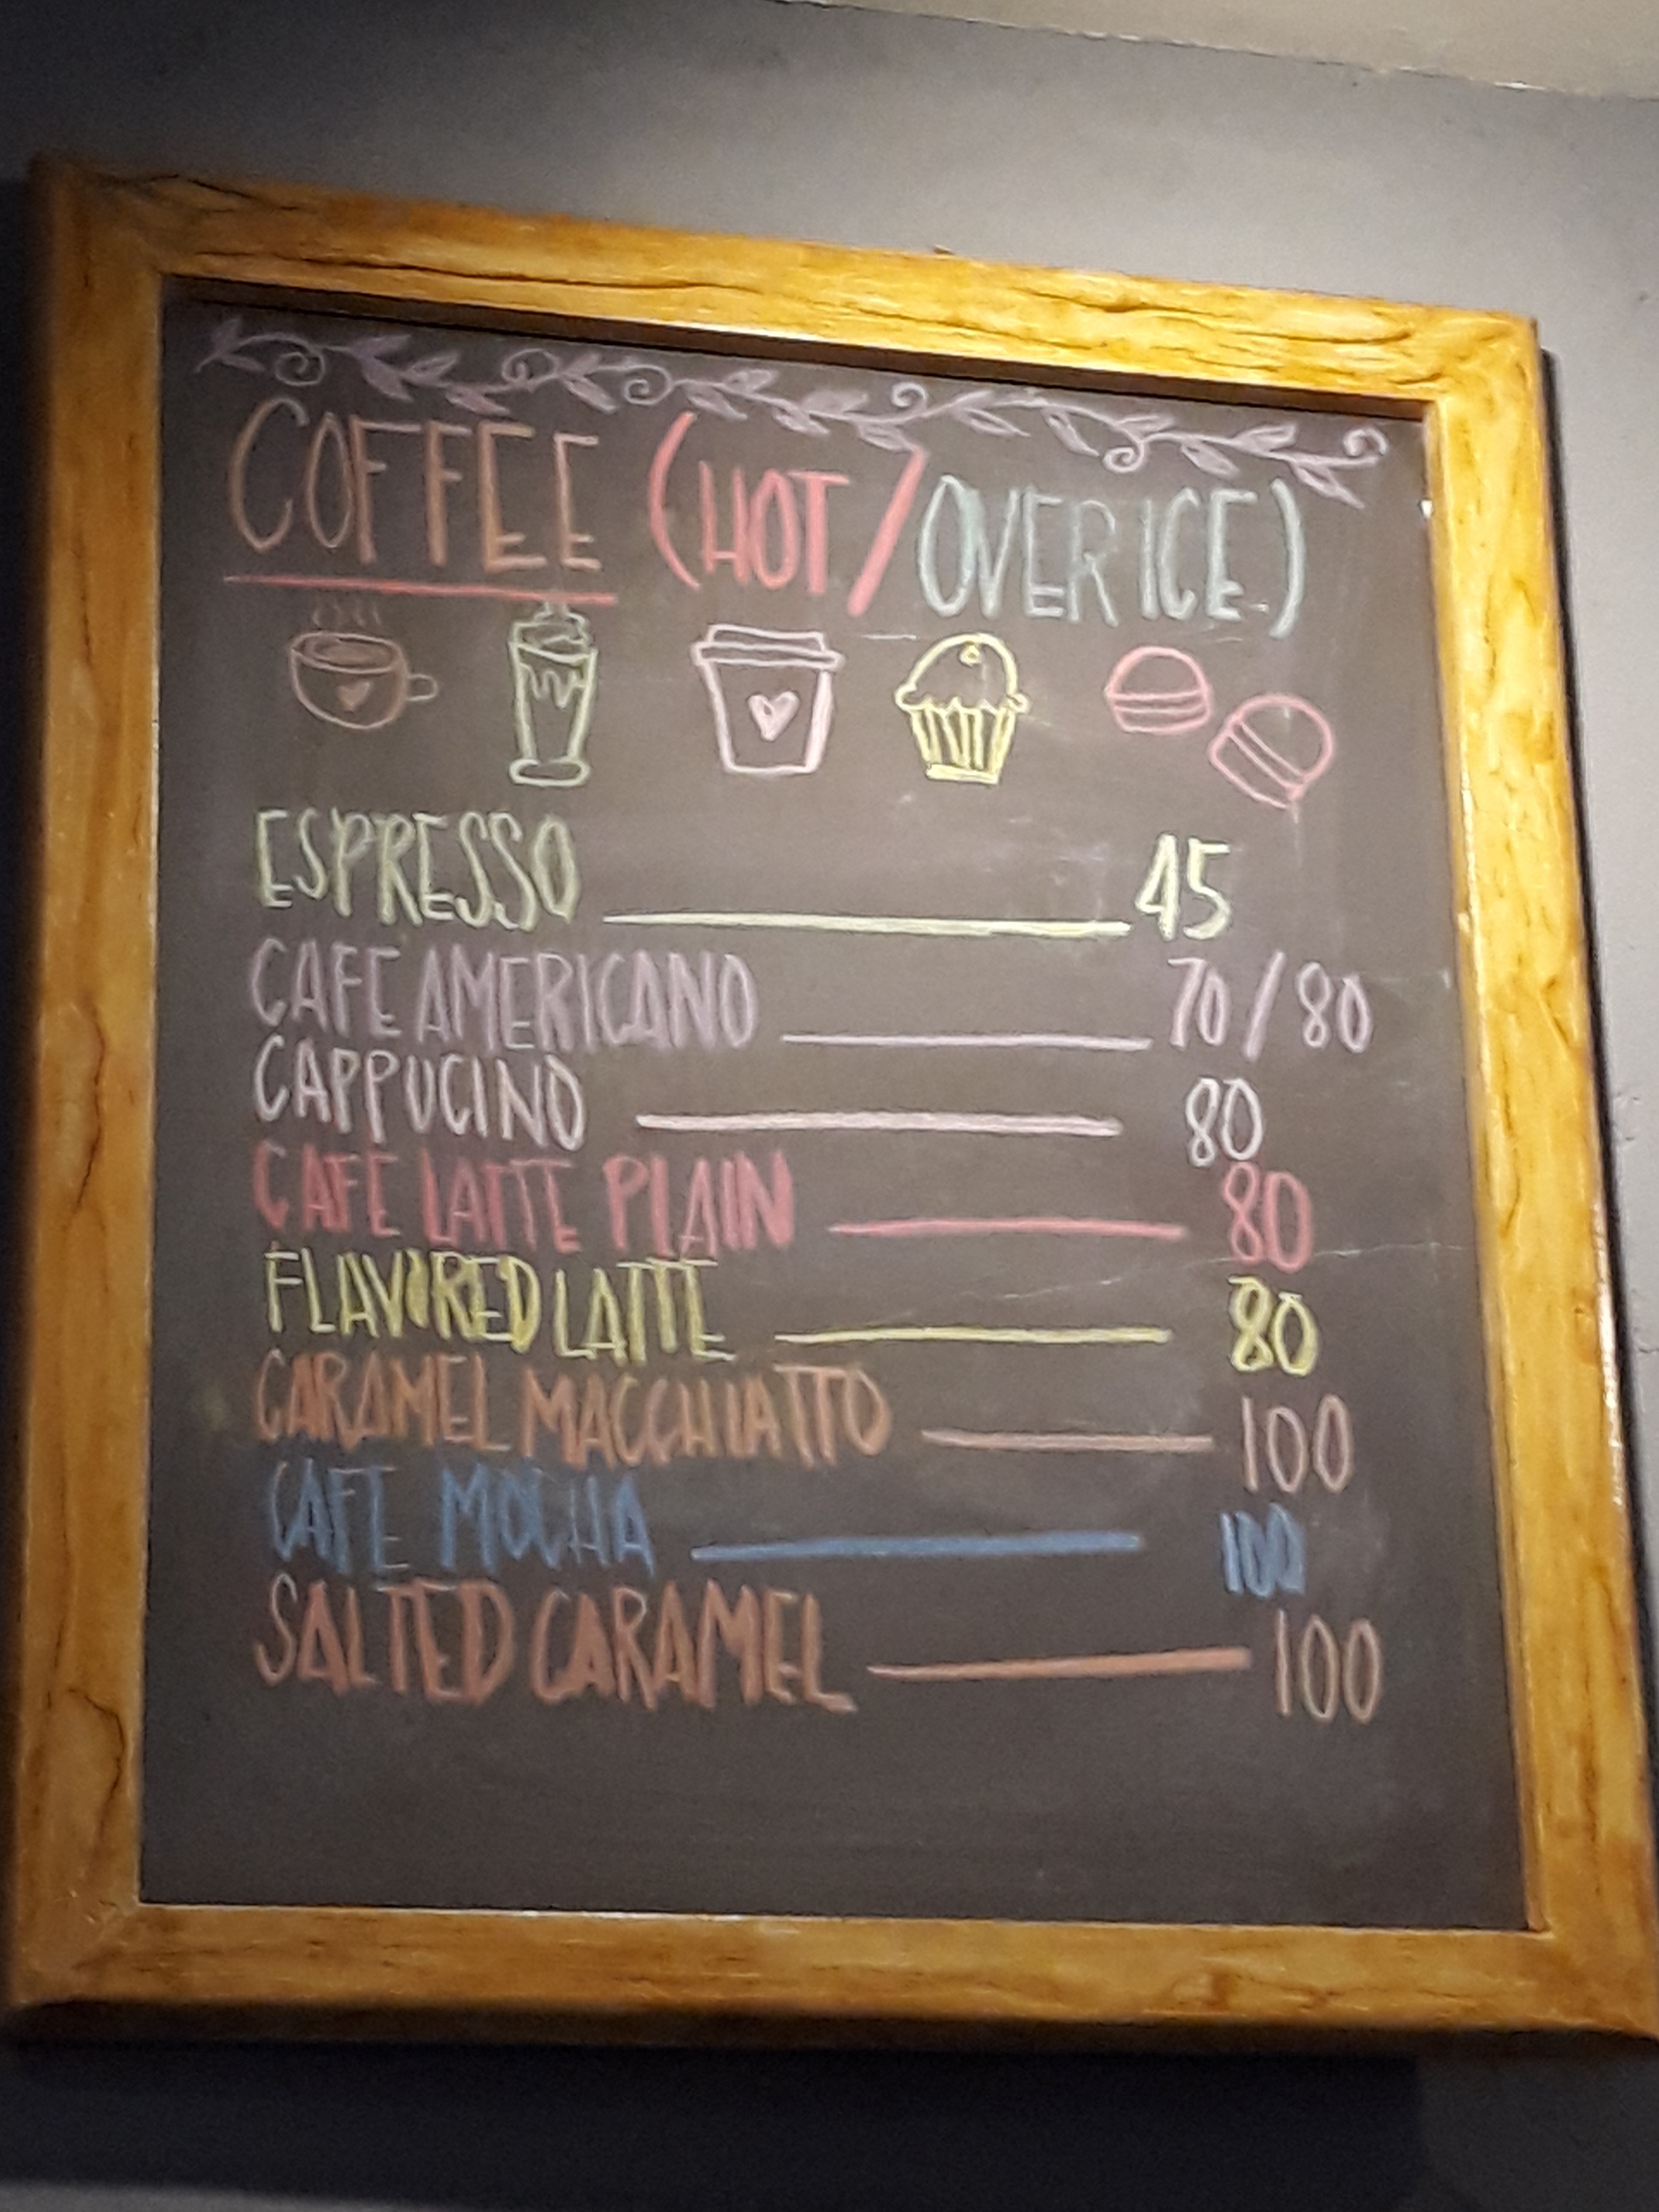 COFFEE (HOT/OVER ICE)
ESPRESSO 45
CAFE AMERICANO 70/80
CAPPUCINO 80
CAFE LATTE PLAIN 80
FLAVORED LATTE 80
CARAMEL MACCHIATTO 100
CAFE MOCHA 100
SALTED CARAMEL 100